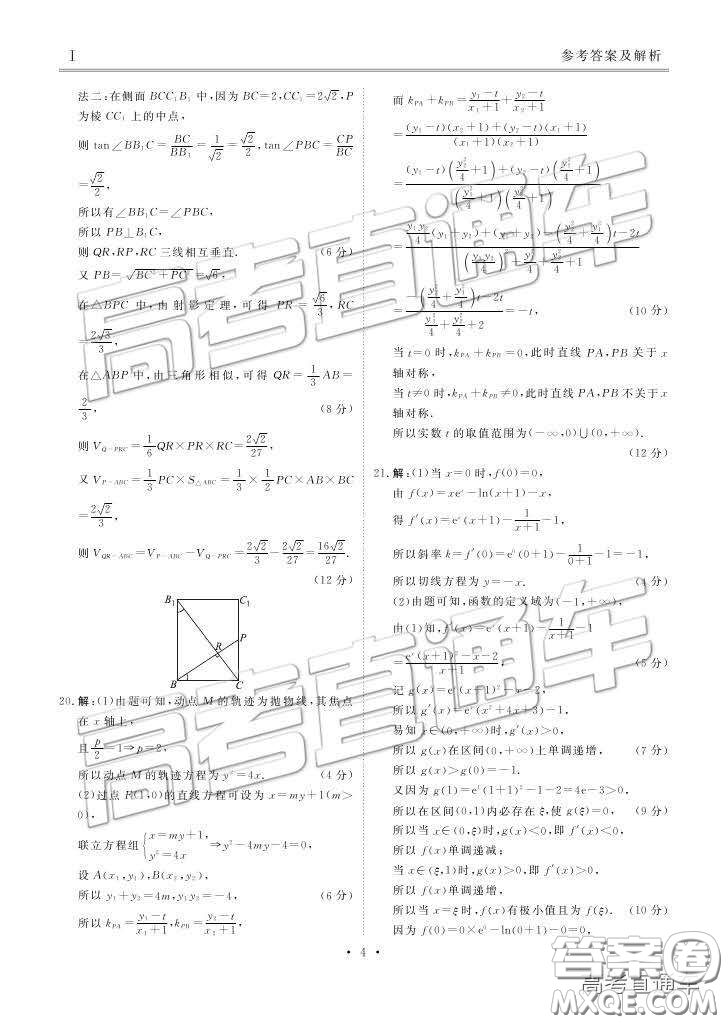 I
参考答案及解析
法二:在侧面 BCC₁B₁ 中,因为 BC=2,CC₁=2√2,P
为棱 CC₁ 上的中点,
则 tan∠BB₁C=BC/BB₁=1/√2=√2/2,tan∠PBC=CP/BC
=√2/2,
所以有∠BB₁C=∠PBC,
所以 PB⊥B₁C,
则 QR,RP,RC 三线相互垂直. (6 分)
又 PB=√(BC²+PC²)=√6,
在△BPC 中,由射影定理,可得 PR=√6/3,RC
=2√3/3,
在△ABP 中,由三角形相似,可得 QR=1/3 AB=
2/3, (8 分)
则 V_{Q-PRC}=1/6 QR×PR×RC=2√2/27,
又 V_{P-ABC}=1/3 PC×S_{△ABC}=1/3×1/2 PC×AB×BC
=2√2/3,
则 V_{QR-ABC}=V_{P-ABC}-V_{Q-PRC}=2√2/3-2√2/27=16√2/27.
(12 分)
B₁ C₁
P
R
B C
20.解:(1)由题可知,动点 M 的轨迹为抛物线,其焦点
在 x 轴上,
且 p/2=1⇒p=2,
所以动点 M 的轨迹方程为 y²=4x. (4 分)
(2)过点 F(1,0)的直线方程可设为 x=my+1(m>
0),
联立方程组{x=my+1, y²=4x ⇒y²-4my-4=0,
设 A(x₁,y₁),B(x₂,y₂),
所以 y₁+y₂=4m,y₁y₂=-4, (6 分)
所以 k_{PA}=(y₁-t)/(x₁+1),k_{PB}=(y₂-t)/(x₂+1),
而 k_{PA}+k_{PB}=(y₁-t)/(x₁+1)+(y₂-t)/(x₂+1)
=((y₁-t)(x₂+1)+(y₂-t)(x₁+1))/((x₁+1)(x₂+1))
=((y₁-t)(y₂²/4+1)+(y₂-t)(y₁²/4+1))/((y₁²/4+1)(y₂²/4+1))
=(y₁y₂/4(y₁+y₂)+(y₁+y₂)-(y₁²/4+y₂²/4)t-2t)/((y₁y₂/4)²+y₁²/4+y₂²/4+1)
=(-(y₁²/4+y₂²/4)t-2t)/(y₁²/4+y₂²/4+2)=-t, (10 分)
当 t=0 时,k_{PA}+k_{PB}=0,此时直线 PA,PB 关于 x
轴对称,
当 t≠0 时,k_{PA}+k_{PB}≠0,此时直线 PA,PB 不关于 x
轴对称.
所以实数 t 的取值范围为(-∞,0)∪(0,+∞).
(12 分)
21.解:(1)当 x=0 时,f(0)=0,
由 f(x)=xeˣ-ln(x+1)-x,
得 f′(x)=eˣ(x+1)-1/(x+1)-1,
所以斜率 k=f′(0)=e⁰(0+1)-1/(0+1)-1=-1,
所以切线方程为 y=-x. (4 分)
(2)由题可知,函数的定义域为(-1,+∞),
由(1)知,f′(x)=eˣ(x+1)-1/(x+1)-1
=(eˣ(x+1)²-x-2)/(x+1), (5 分)
记 g(x)=eˣ(x+1)²-x-2,
所以 g′(x)=eˣ(x²+4x+3)-1,
易知 x∈(0,+∞)时,g′(x)>0,
所以 g(x)在区间(0,+∞)上单调递增, (7 分)
所以 g(x)>g(0)=-1.
又因为 g(1)=e¹(1+1)²-1-2=4e-3>0,
所以在区间(0,1)内必存在 ξ,使 g(ξ)=0, (9 分)
所以当 x∈(0,ξ)时,g(x)<0,即 f′(x)<0,
所以 f(x)单调递减;
当 x∈(ξ,1)时,g(x)>0,即 f′(x)>0,
所以 f(x)单调递增,
所以当 x=ξ时,f(x)有极小值且为 f(ξ). (10 分)
因为 f(0)=0×e⁰-ln(0+1)-0=0,
• 4 •
高考直通车
高考直通车
答案圈
高考直通车
MXQE.COM